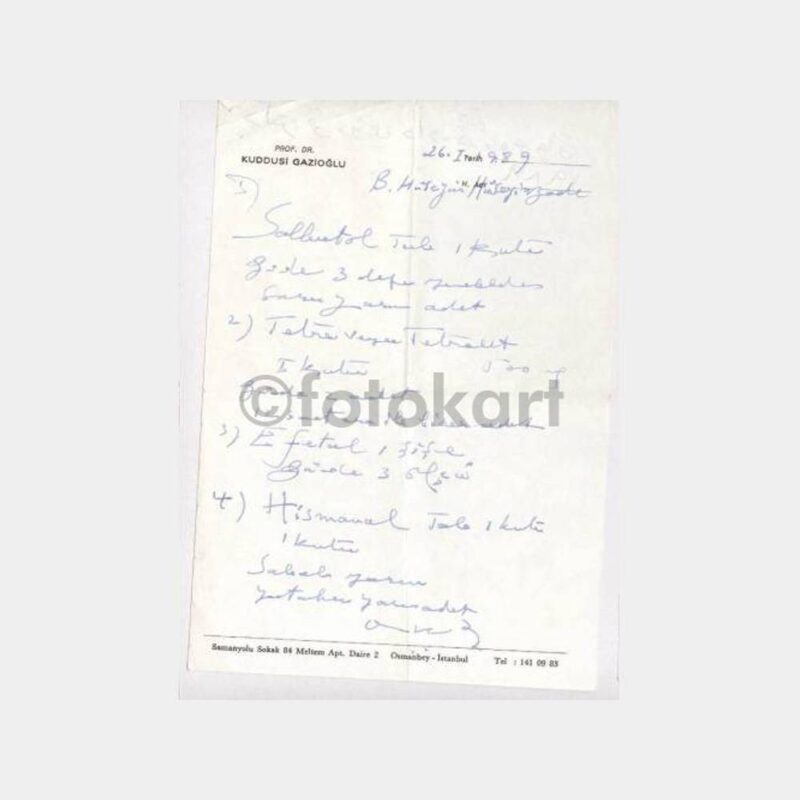 PROF. DR.
KUDDUSİ GAZİOĞLU
26-I Tarih 989
B. Hüseyin Hüseyinzade
1)
Salbutol Tab 1 kutu
Günde 3 defa yemekten
sonra yarım adet
2) Tetra veya Tetralet
1 kutu 500
©fotokart
3) Efetal 1 şişe
Günde 3 ölçü
4) Hismanal Tab 1 kutu
1 kutu
Sabah yarım
yatarken yarım adet
Samanyolu Sokak 84 Meltem Apt. Daire 2 Osmanbey - İstanbul Tel : 141 09 83